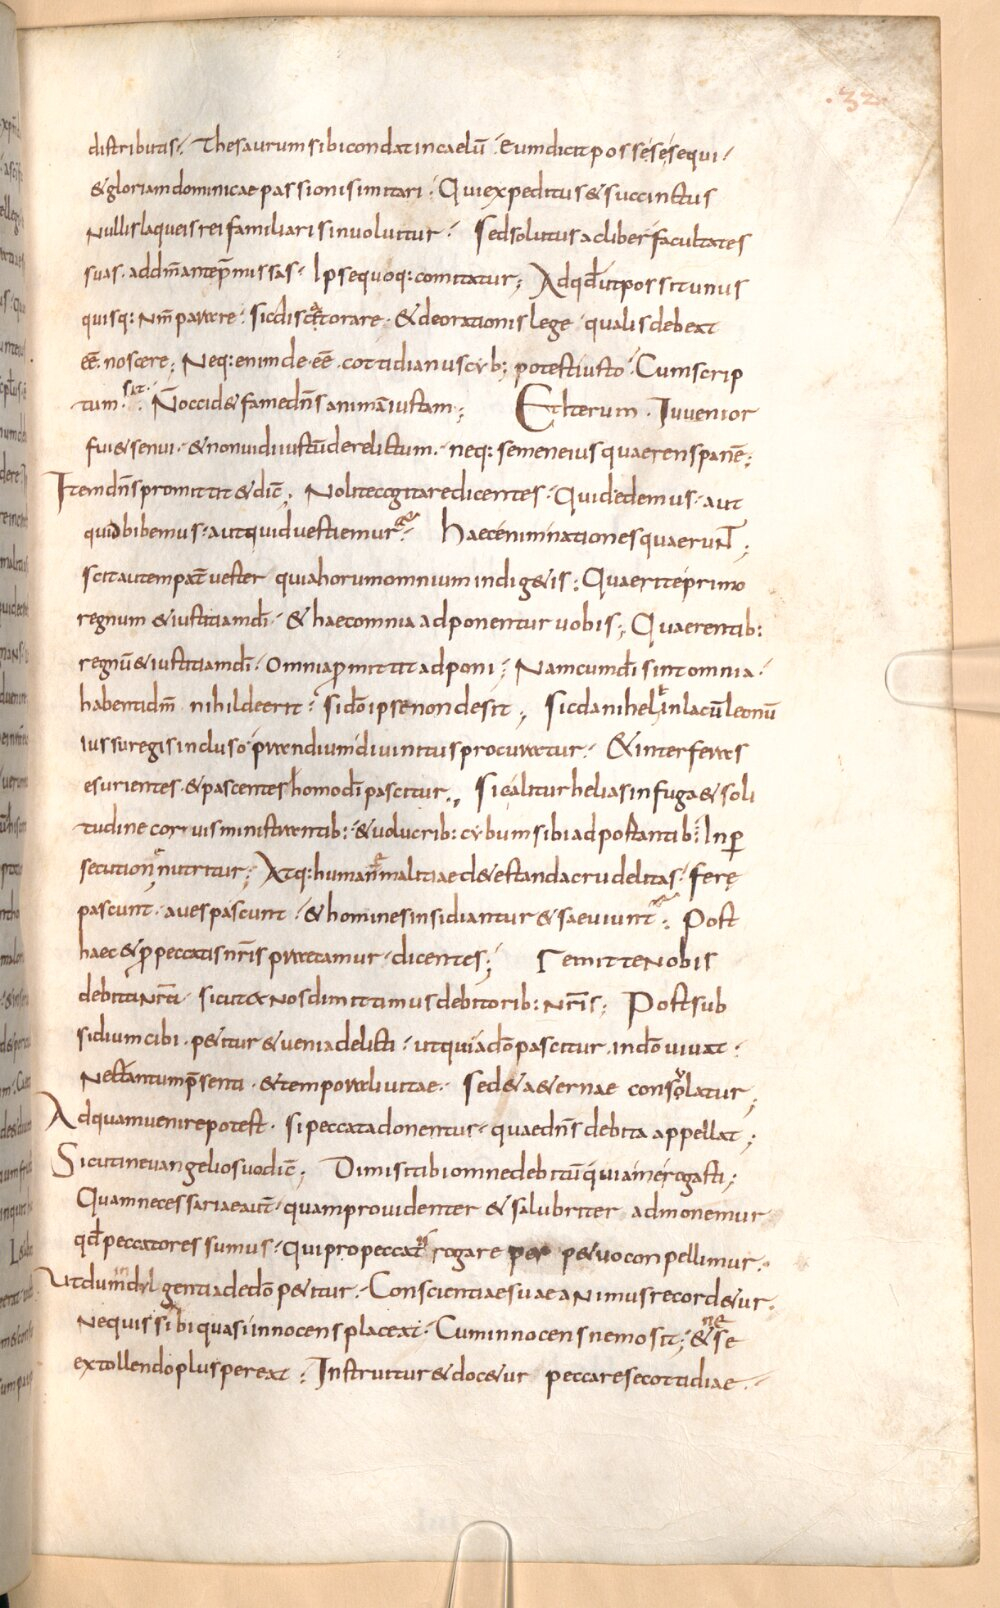 .32.
distributis. Thesaurum sibi condat in caelū. Eum dicit posse se sequi.
& gloriam dominicae passionis imitari. Qui expeditus & succinctus
Nullis laqueis rei familiaris involvitur. Sed solutus ac liber facultates
suas. ad dm̄ ante p̄missas. Ipse quoq: comitatur; Ad qd̄ ut possit unus
quisq: Nr̄m parare. sic discat orare. & de orationis lege qualis debeat
eē. noscere; Neq: enim de eē. cottidianus cyb; potest iusto. Cum scrip
tum. sit. N̄ occid& fame dn̄s animā iustam; Et iterum. Iuvenior
fui & senui. & non vidi iustū derelictum. neq: semen eius quaerens panē;
Item dn̄s promittit & dic̄; Nolite cogitare dicentes. Quid edemus. aut
quid bibemus. aut quid vestiemur. Haec enim nationes quaeruNT;
scit autem pat̄ vester quia horum omnium indig&is; Quaerite primo
regnum & iustitiam dī. & haec omnia adponentur uobis; Quaerentib:
regnū & iustitiam dī. Omnia p̄mittit adponi; Nam cum dī sint omnia.
habenti dm̄ nihil deerit. si dō ipse non desit; Sic daniheli in lacū leonū
iussu regis incluso prandium divinitus procuratur. & inter feras
esurientes. & pascentes homo dī pascitur., Sic alitur helias in fuga & soli
tudine corvis ministrantib:. & volucrib: cybum sibi adpostantib: In p̄
secutione nutritur; Atq: humanae malitiae d&estanda crudelitas. ferę
pascunt. aves pascunt. & homines insidiantur & saeviunt. Post
haec & p̄ peccatis nr̄is praecamur. dicentes; Remitte Nobis
debita Nr̄a. sicut & Nos dimittimus debitorib: Nr̄is; Post sub
sidium cibi. p&itur & venia delicti. ut qui a dō pascitur. in dō vivat.
Nec tantum p̄senti. & temporali vitae. Sed & a&ernae consolatur;
Ad quam venire potest. si peccata donentur. quae dn̄s debita appellat;
Sicut in evangelio suo dic̄; Dimisi tibi omne debitū quia me rogasti;
Quam necessariae aut̄. quam providenter & salubriter admonemur
qd̄ peccatores sumus. Qui pro peccatis rogare per p&uo conpellimur.
Ut dum indulgentia de dō p&itur. Conscientiae suae aNimus record&ur.
Nequis sibi quasi innocens placeat. Cum innocens nemo sit; & ne se
extollendo plus pereat. Instruitur & doc&ur peccare se cottidiae.